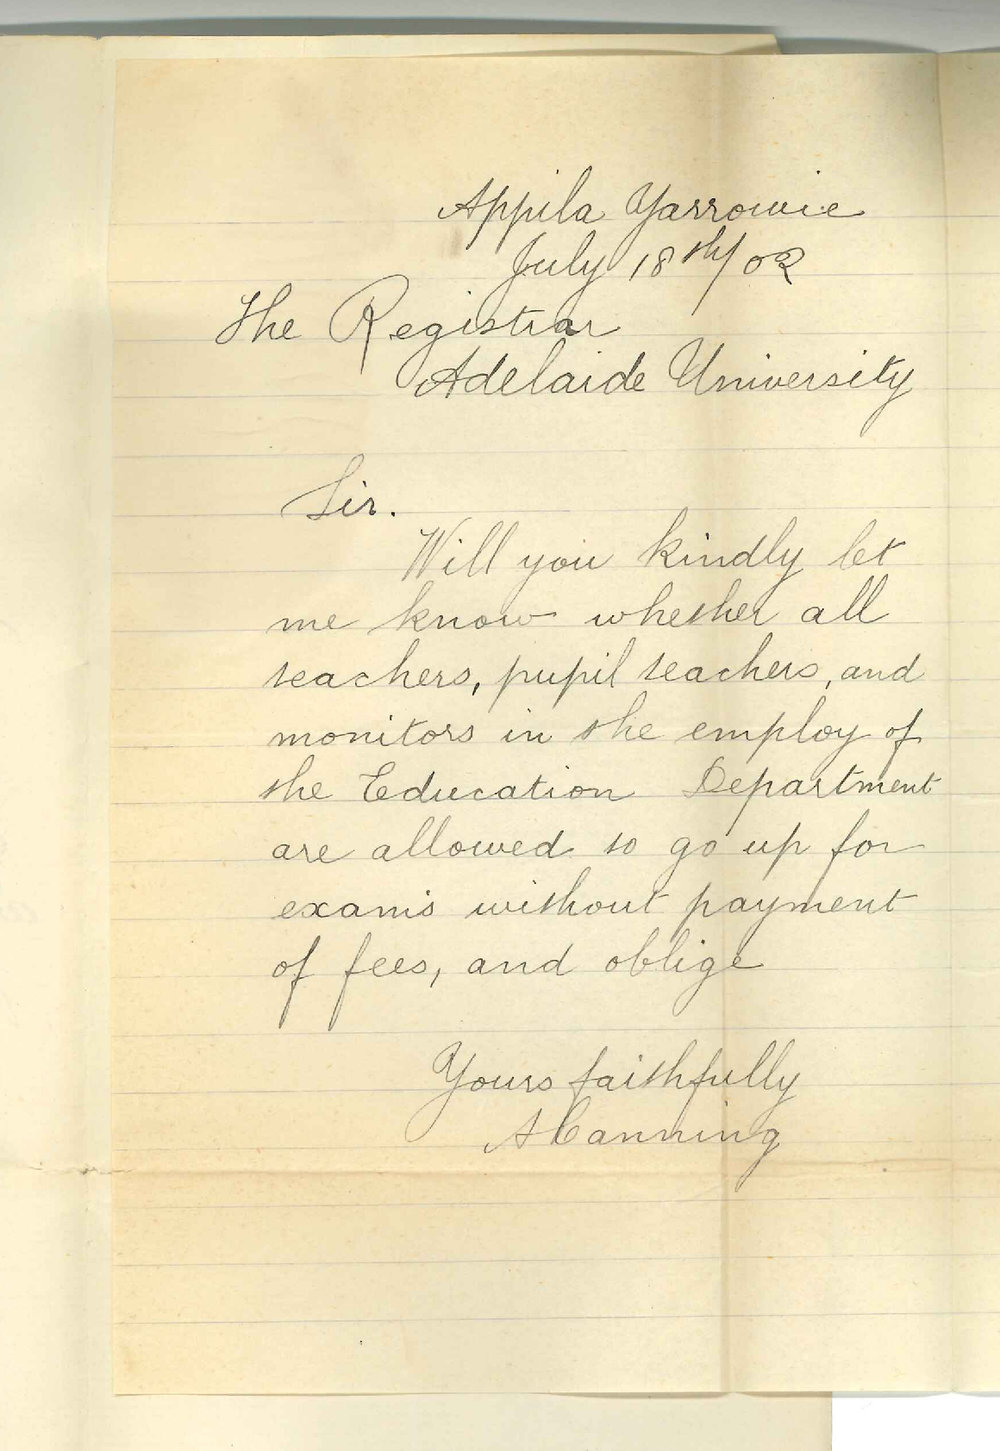 Appila Yarrowie
July 18th/02
The Registrar
Adelaide University
Sir.
Will you kindly let
me know whether all
teachers, pupil teachers, and
monitors in the employ of
the Education Department
are allowed to go up for
exams without payment
of fees, and oblige
Yours faithfully
A Canning